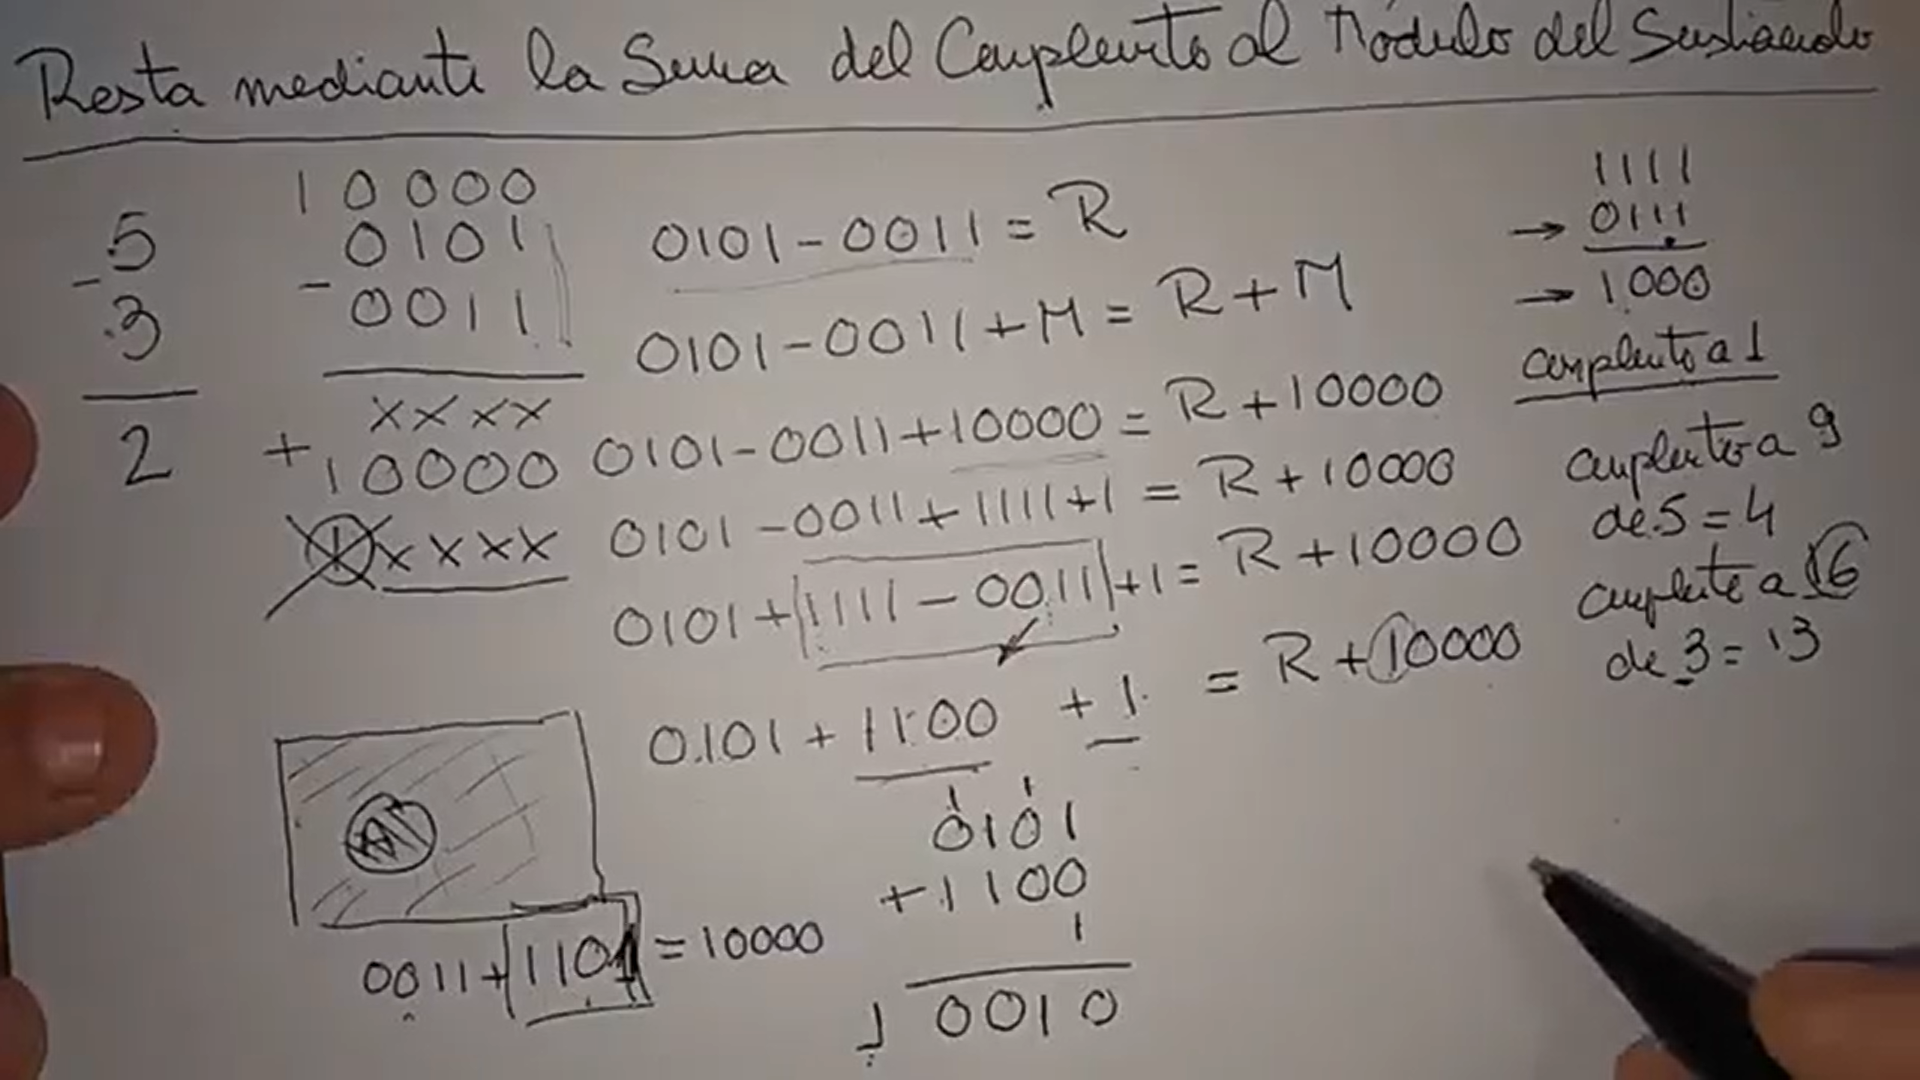 Resta mediante la Suma del Complemento al Módulo del Sustraendo
5
- 3
2
10000
0101
- 0011
xxxx
+ 10000
1xxxx
0101 - 0011 = R
0101 - 0011 + M = R + M
0101 - 0011 + 10000 = R + 10000
0101 - 0011 + 1111 + 1 = R + 10000
0101 + 1111 - 0011 + 1 = R + 10000
0101 + 1100 + 1 = R + 10000
1 1
0101
+ 1100
1
1 0010
0011 + 1101 = 10000
1111
→ 0111
→ 1000
complemento a 1
complemento a 9
de 5 = 4
complemento a 16
de 3 = 13